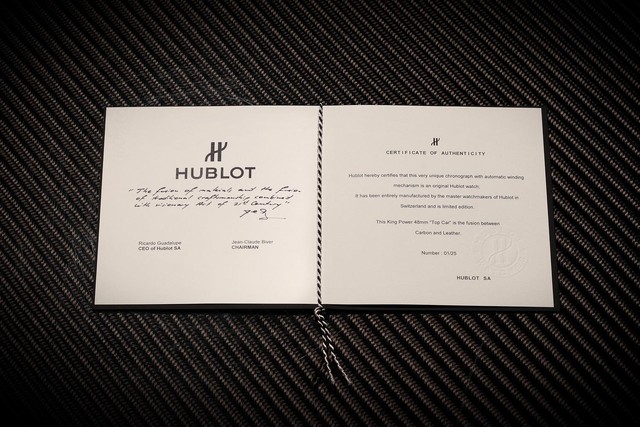 HUBLOT
"The fusion of materials and the fusion
of traditional craftsmanship combined
with visionary Art of 21st Century"
Ricardo Guadalupe
CEO of Hublot SA
Jean-Claude Biver
CHAIRMAN
CERTIFICATE OF AUTHENTICITY
Hublot hereby certifies that this very unique chronograph with automatic winding
mechanism is an original Hublot watch;
It has been entirely manufactured by the master watchmakers of Hublot in
Switzerland and is limited edition.
This King Power 48mm "Top Car" is the fusion between
Carbon and Leather.
Number : 01/25
HUBLOT SA